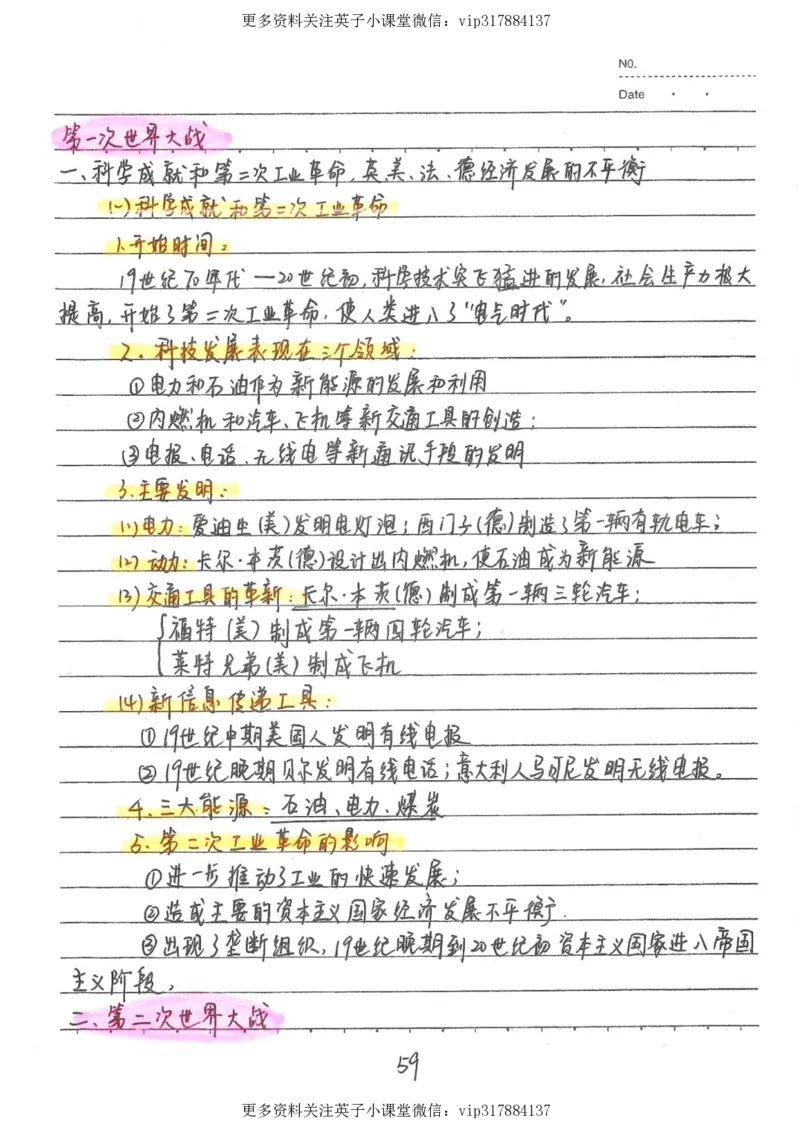 更多资料关注英子小课堂微信：vip317884137
NO.
Date
第一次世界大战
一、科学成就和第二次工业革命，英、美、法、德经济发展的不平衡
(一)科学成就和第二次工业革命
1.开始时间：
19世纪70年代—20世纪初，科学技术突飞猛进的发展，社会生产力极大
提高，开始了第二次工业革命，使人类进入了“电气时代”。
2、科技发展表现在三个领域：
①电力和石油作为新能源的发展和利用
②内燃机和汽车、飞机等新交通工具的创造；
③电报、电话、无线电等新通讯手段的发明
3.主要发明：
(1)电力：爱迪生(美)发明电灯泡；西门子(德)制造了第一辆有轨电车；
(2)动力：卡尔·本茨(德)设计出内燃机，使石油成为新能源
(3)交通工具的革新：卡尔·本茨(德)制成第一辆三轮汽车；
福特(美)制成第一辆四轮汽车；
莱特兄弟(美)制成飞机
(4)新信息传递工具：
①19世纪中期美国人发明有线电报
②19世纪晚期贝尔发明有线电话；意大利人马可尼发明无线电报。
4.三大能源：石油、电力、煤炭
5.第二次工业革命的影响
①进一步推动了工业的快速发展；
②造成主要的资本主义国家经济发展不平衡.
③出现了垄断组织，19世纪晚期到20世纪初资本主义国家进入帝国
主义阶段。
二、第二次世界大战
59
更多资料关注英子小课堂微信：vip317884137